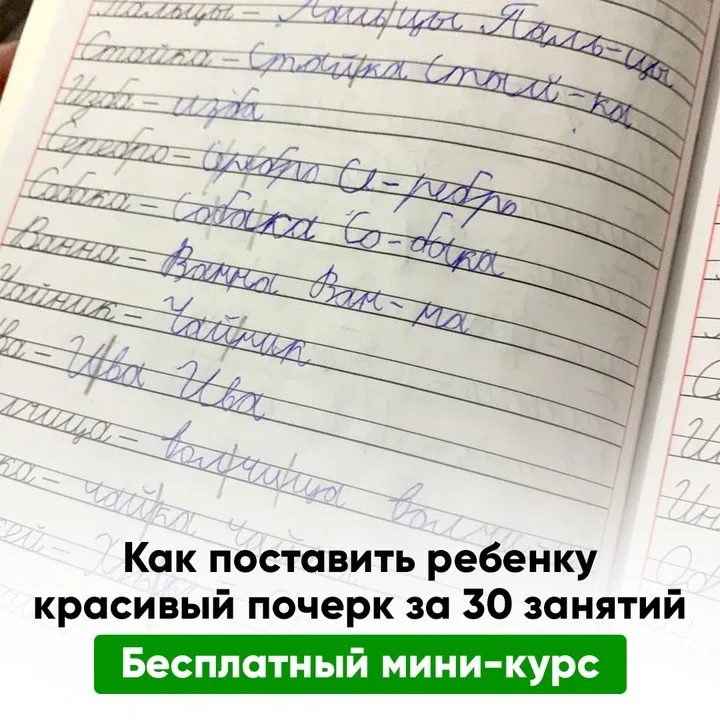 Пальцы – Паль|цы Паль-цы
Стойка – Стой|ка Стый-ка
Изба – изба
Серебро – Се|ре|бро Се-ребро
Собака – Со|ба|ка Со-бака
Ванна – Ванна Ван-на
Чайник – Чай|ник
ва – И|ва Ива
лчица – вол|чи|ца волчи
ка – чай|ка чай
кей –
Как поставить ребенку
красивый почерк за 30 занятий
Бесплатный мини-курс